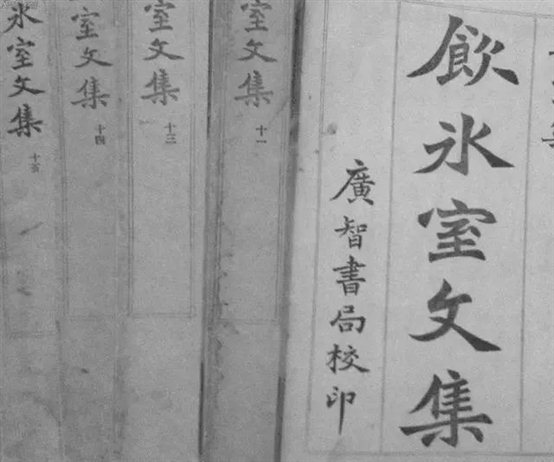 飲冰室文集
廣智書局校印
室文集
十一
室文集
十三
室文集
十四
冰室文集
十五